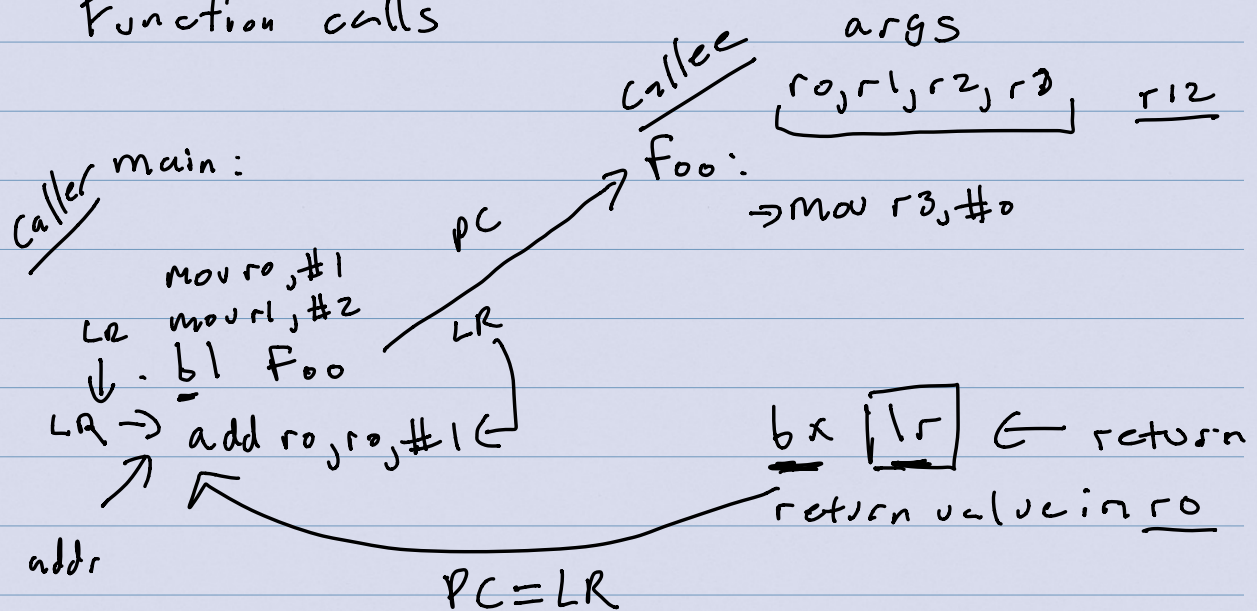 Function calls
args
callee
r0, r1, r2, r3 r12
Caller main:
foo:
→ mov r3, #0
PC
mov r0, #1
mov r1, #2
LR
LR
bl Foo
LR → add r0, r0, #1 ←
bx lr ← return
return value in r0
addr
PC = LR